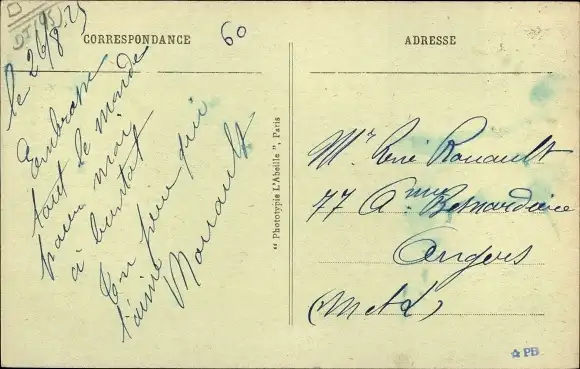 CORRESPONDANCE
60
le 26/8-25
Embrasse
tout le monde
pour moi
à bientôt
Ton père qui
t'aime
Rouault
"Phototypie L'Abeille", Paris
ADRESSE
Mr René Rouault
77 Anue Bernardière
Angers
(M et L)
PB